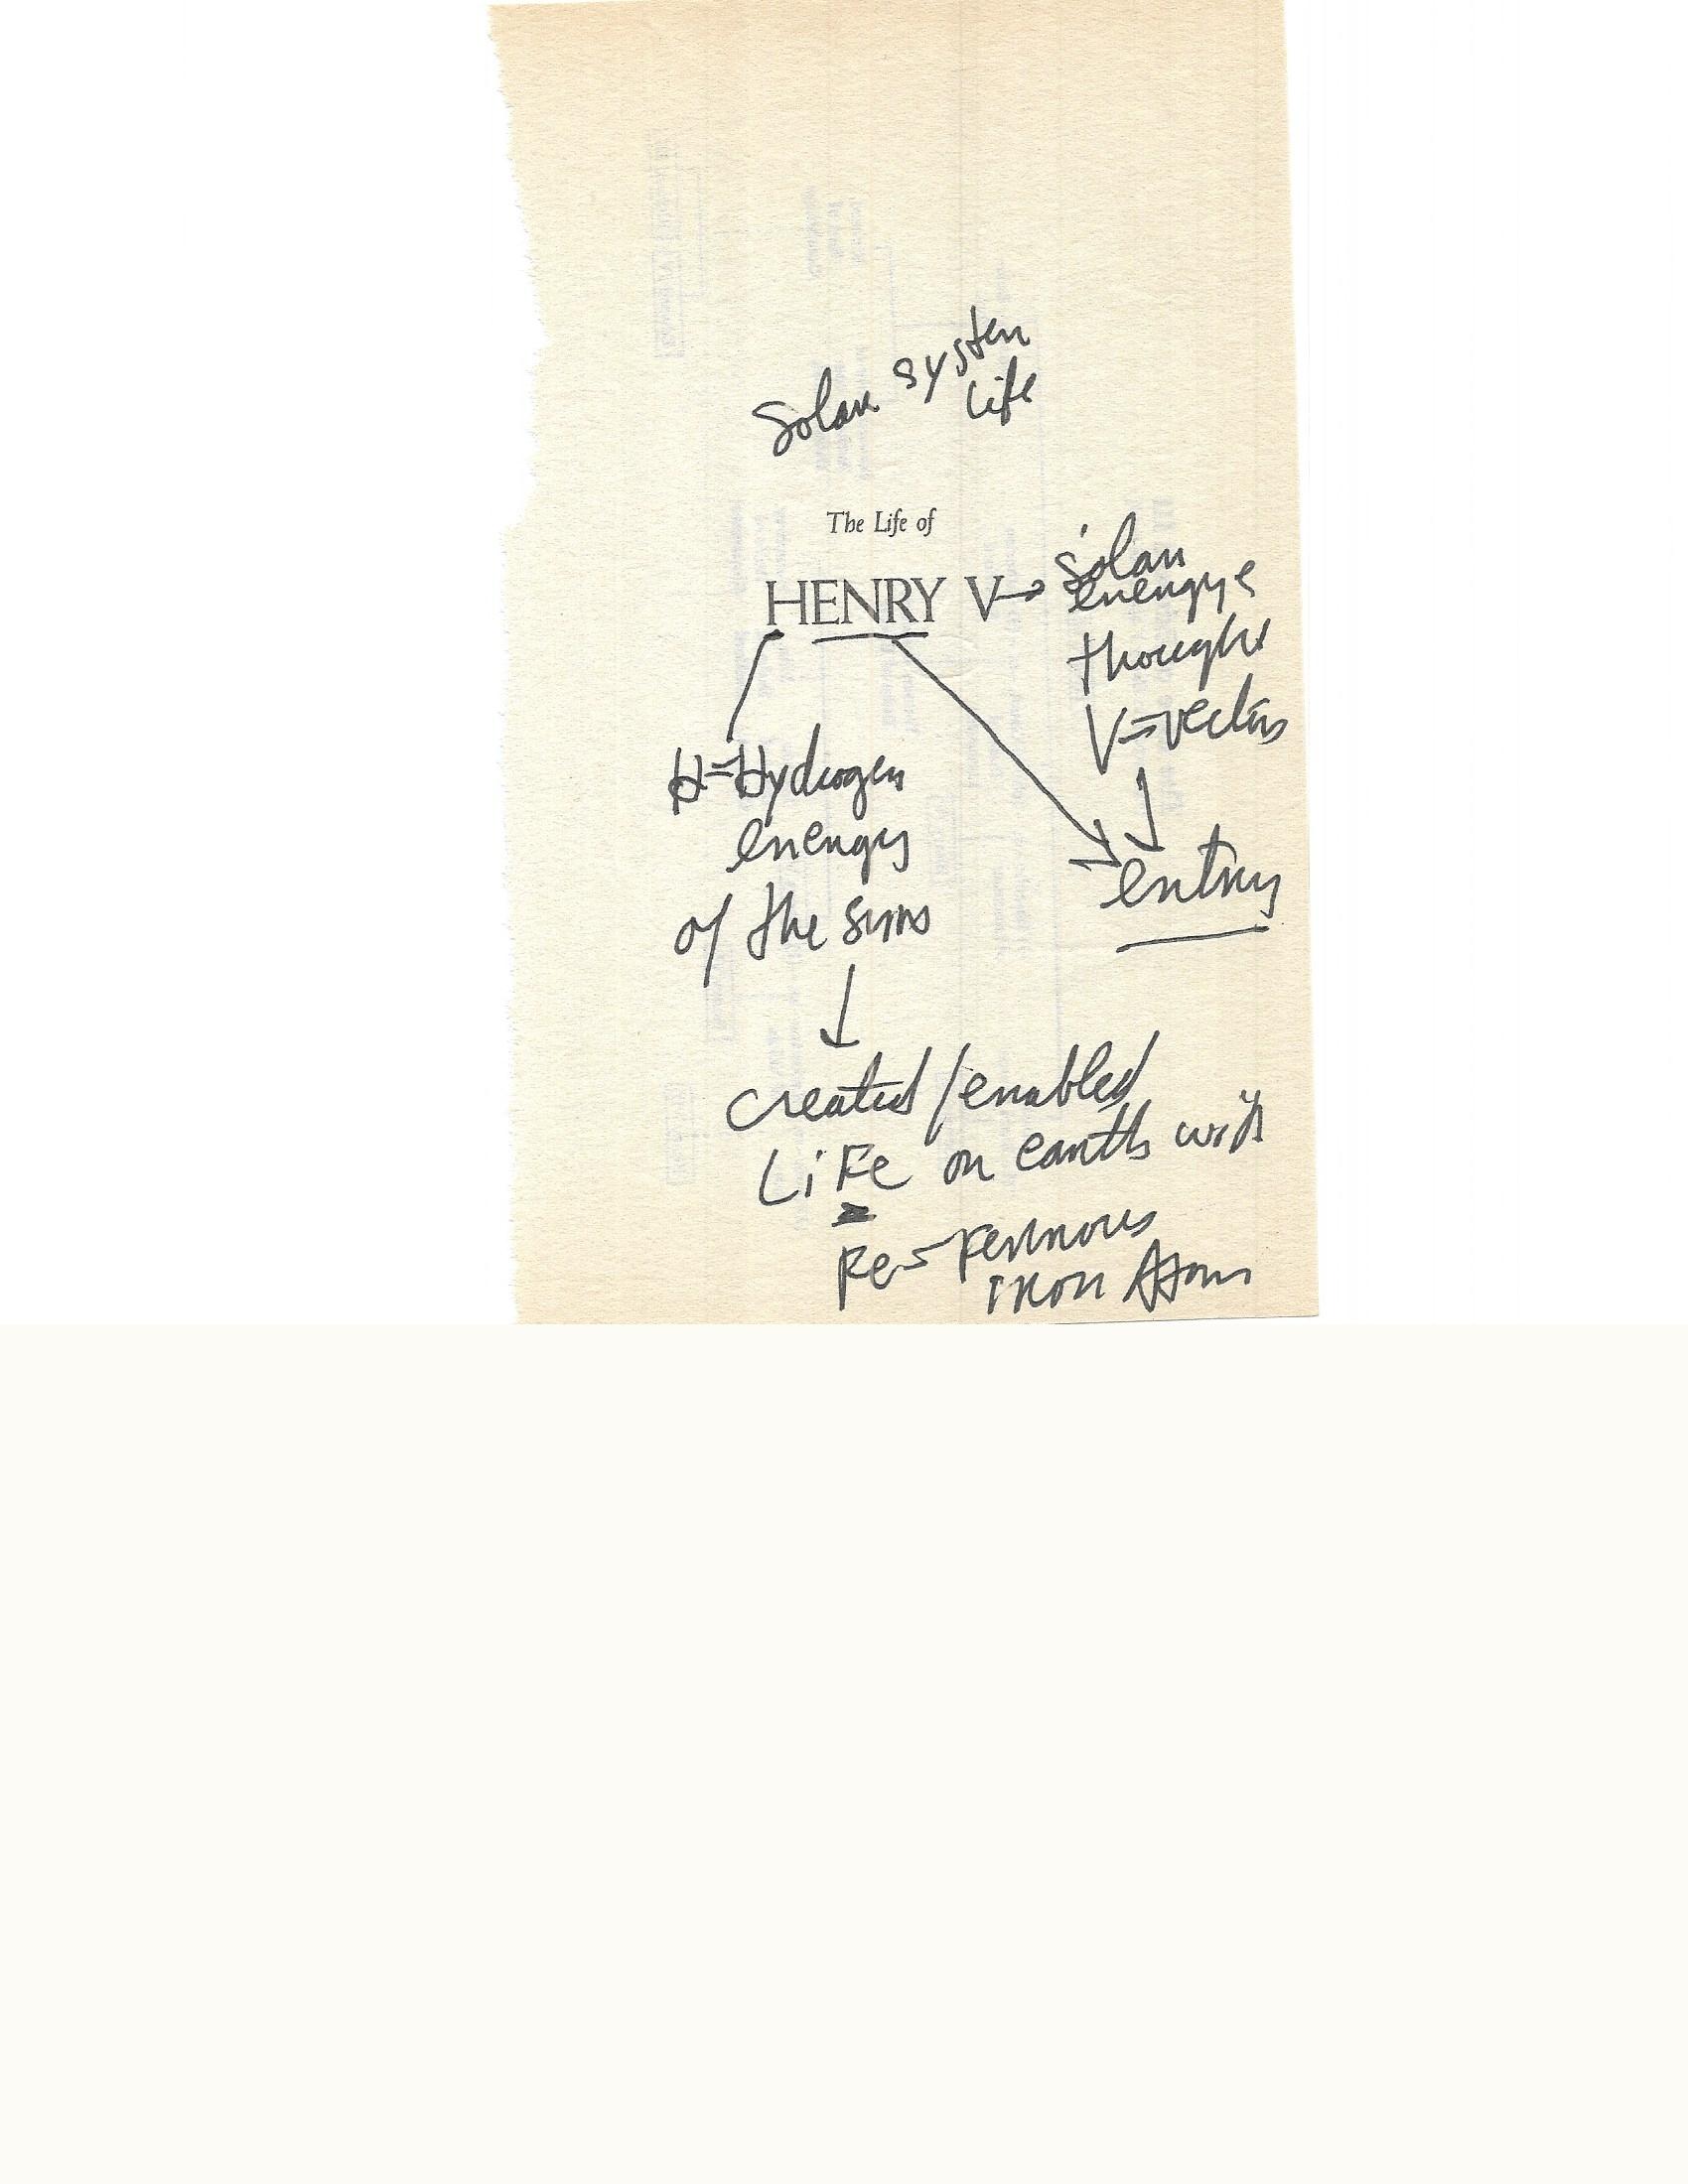 Solar system
Life
The Life of
HENRY V → solar
energy &
thought
V = vectors
H = Hydrogen
energy
of the suns
entry
created/enabled
LiFe on earth with
Fe = Ferrous
iron Atoms